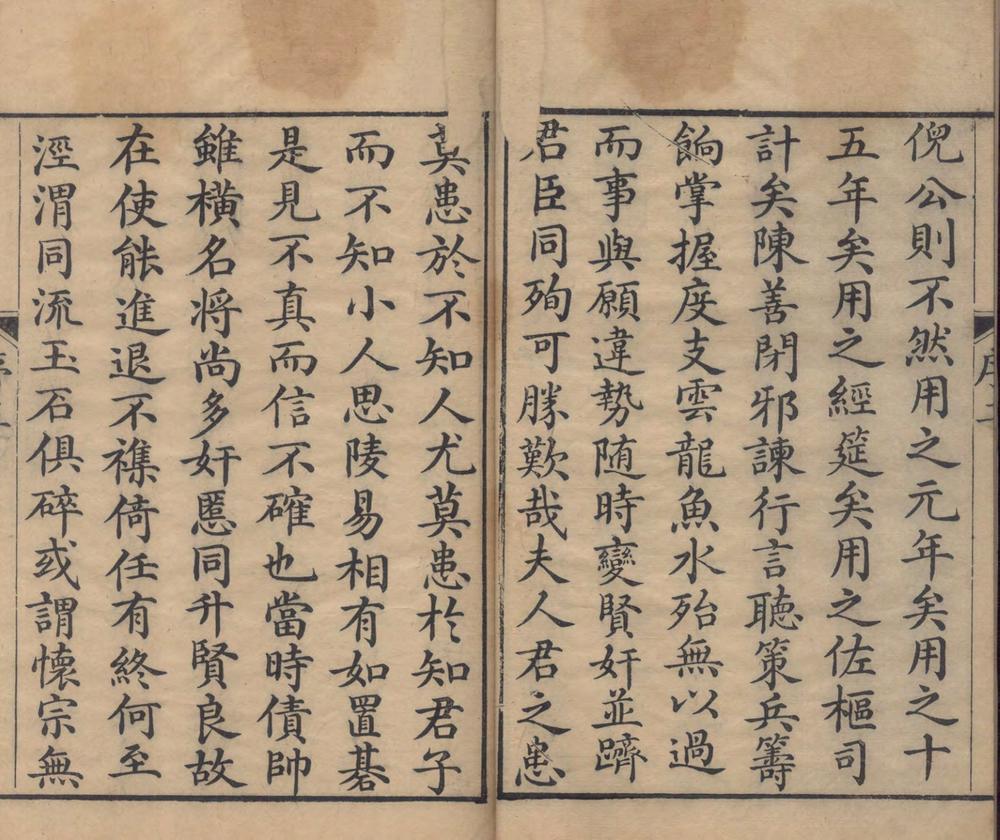 倪公則不然用之元年矣用之十
五年矣用之經筵矣用之佐樞司
計矣陳善閉邪諫行言聽策兵籌
餉掌握度支雲龍魚水殆無以過
而事與願違勢随時變賢奸並躋
君臣同殉可勝歎哉夫人君之患
序二
莫患於不知人尤莫患於知君子
而不知小人思陵易相有如置碁
是見不真而信不確也當時債帥
雖橫名将尚多奸慝同升賢良故
在使能進退不襍倚任有終何至
涇渭同流玉石俱碎或謂懷宗無